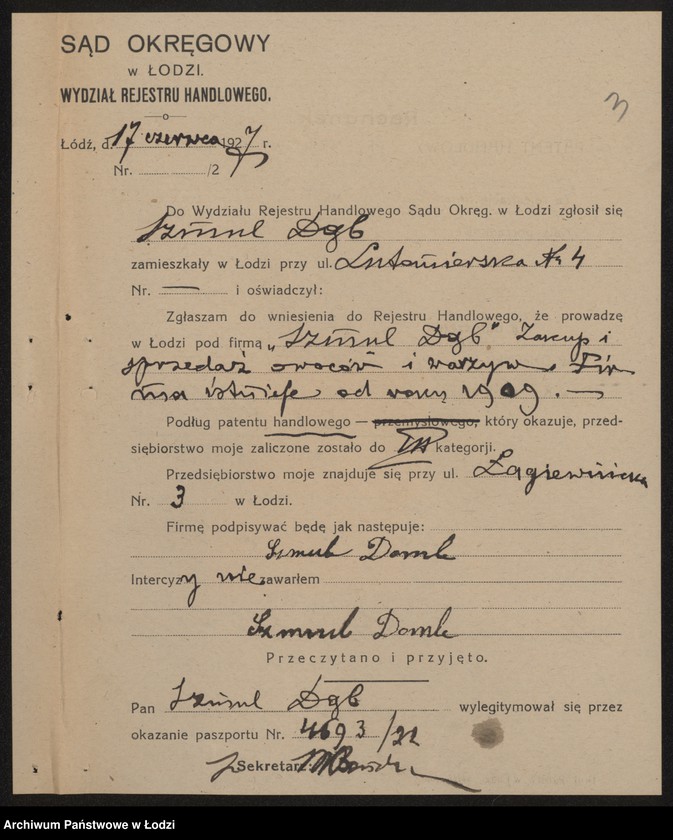 SĄD OKRĘGOWY
W ŁODZI.
WYDZIAŁ REJESTRU HANDLOWEGO.
3
Łódź, d. 17 czerwca 1927 r.
Nr. /27
Do Wydziału Rejestru Handlowego Sądu Okręg. w Łodzi zgłosił się
Szmul Dąb
zamieszkały w Łodzi przy ul. Lutomierska № 4
Nr. — i oświadczył:
Zgłaszam do wniesienia do Rejestru Handlowego, że prowadzę
w Łodzi pod firmą „Szmul Dąb" Zakup i
sprzedaż owoców i warzyw. Fir
ma istnieje od roku 1909. —
Podług patentu handlowego — przemysłowego, który okazuje, przed-
siębiorstwo moje zaliczone zostało do III kategorji.
Przedsiębiorstwo moje znajduje się przy ul. Łagiewnicka
Nr. 3 w Łodzi.
Firmę podpisywać będę jak następuje:
Szmul Domb
Intercyzy nie zawarłem
Szmul Domb
Przeczytano i przyjęto.
Pan Szmul Dąb wylegitymował się przez
okazanie paszportu Nr. 4693/22
Sekretarz:
Archiwum Państwowe w Łodzi